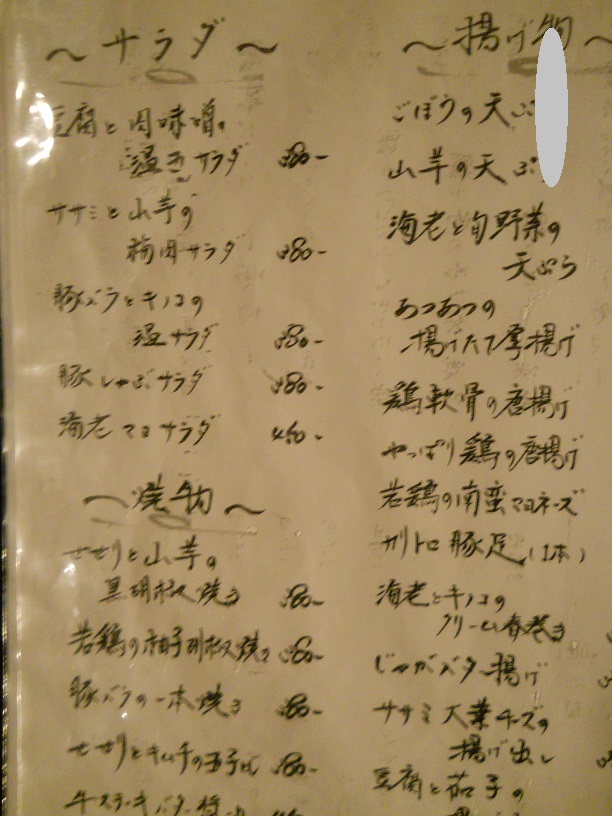 ～サラダ～
豆腐と肉味噌の
温玉サラダ 380-
ササミと山芋の
梅肉サラダ 380-
豚バラとキノコの
温サラダ 380-
豚しゃぶサラダ 380-
海老マヨサラダ 480-
～焼物～
せせりと山芋の
黒胡椒焼き 380-
若鶏の柚子胡椒焼き 380-
豚バラの一本焼き 380-
せせりとキムチの玉子とじ 380-
牛ステーキバター
～揚げ物～
ごぼうの天ぷ
山芋の天ぷ
海老と旬野菜の
天ぷら
あつあつの
揚げたて厚揚げ
鶏軟骨の唐揚げ
やっぱり鶏の唐揚げ
若鶏の南蛮マヨネーズ
カリトロ豚足（1本）
海老とキノコの
クリーム春巻き
じゃがバター揚げ
ササミ大葉チーズの
揚げ出し
豆腐と茄子の